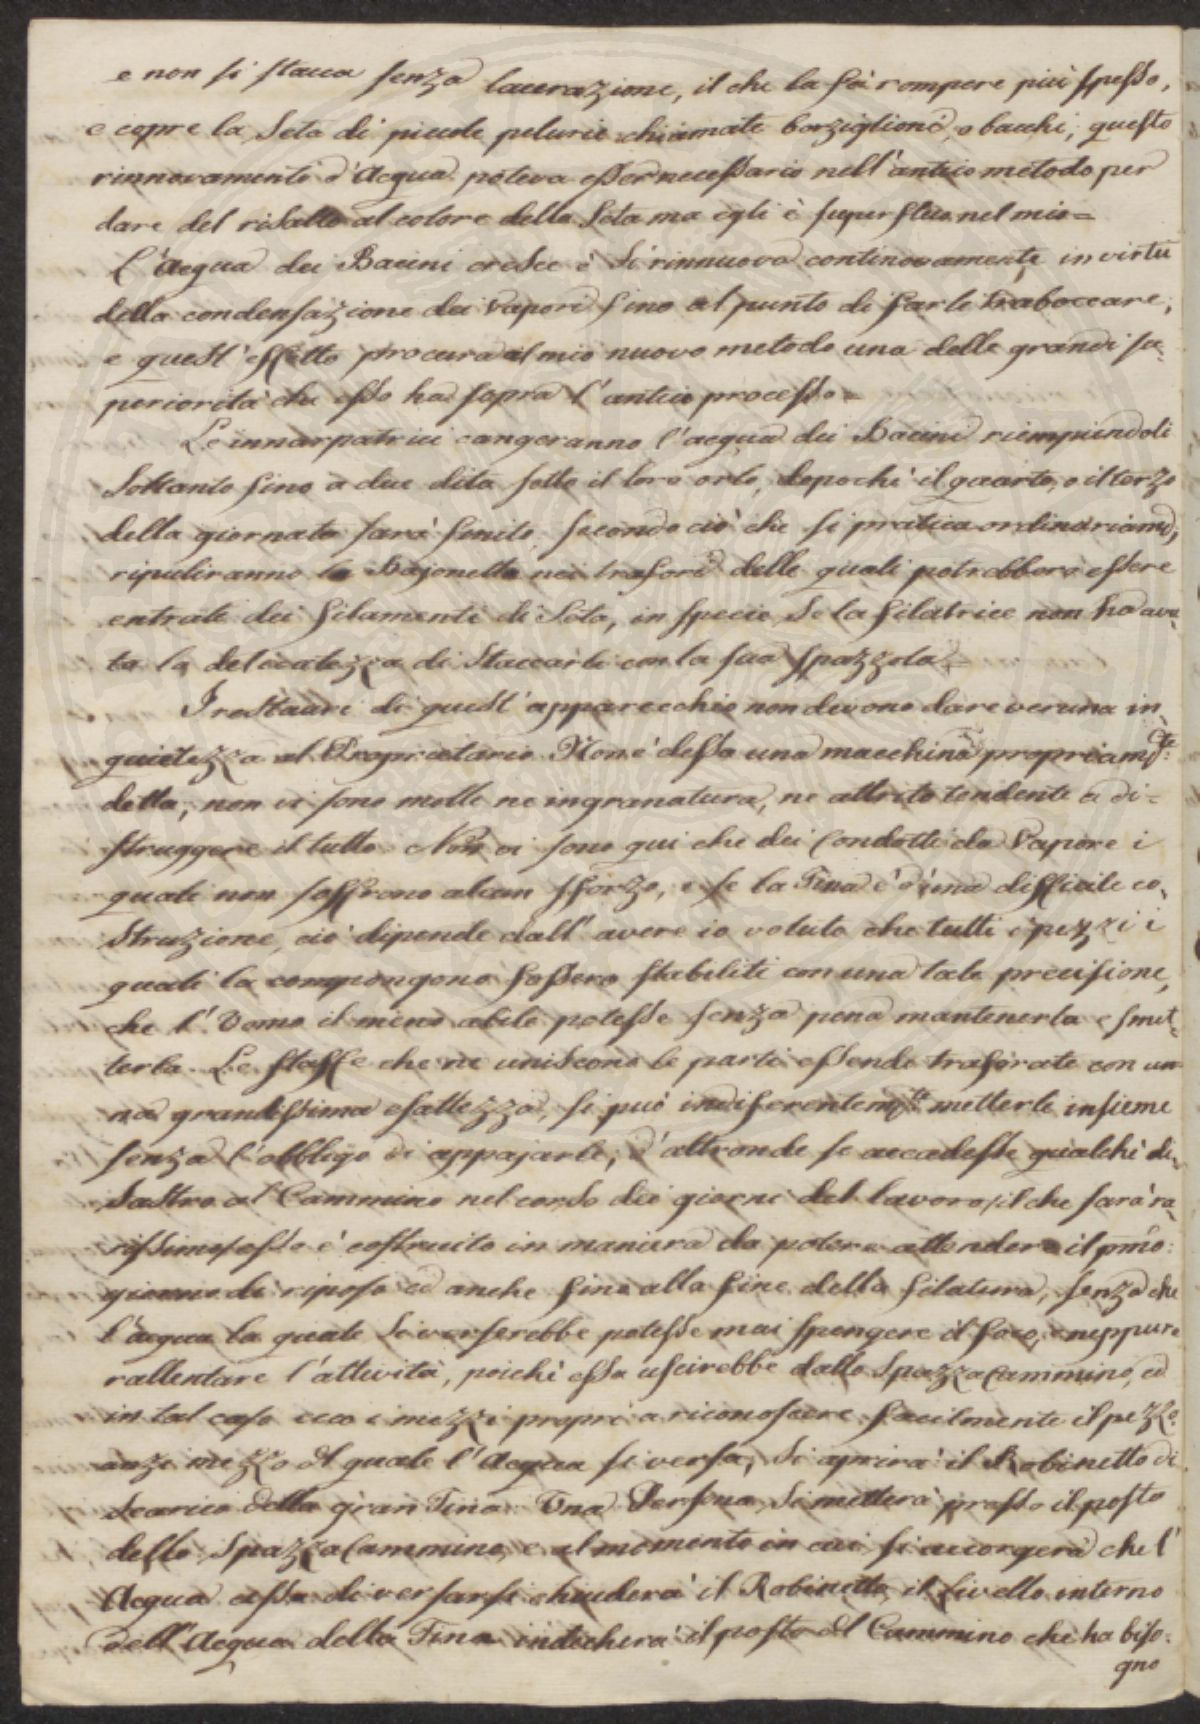 e non si stacca senza lacerazione, il che la fà rompere più spesso,
e copre la Seta di piccole pelurie chiamate borziglioni, o bacchi; questo
rinnovamento d'Acqua poteva esser necessario nell'antico metodo per
dare del risalto al colore della Seta ma egli è superfluo nel mio =
L'Acqua dei Bacini cresce è Si rinnuova continovamente in virtù
della condensazione dei Vapori fino al punto di farle traboccare,
e quest'effetto procura al mio nuovo metodo una delle grandi su-
periorità che esso ha sopra l'antico processo =
Le innarpatrici cangeranno l'acqua dei Bacini riempiendoli
Soltanto fino a due dita sotto il loro orlo, dopochè il quarto, o il terzo
della giornata sarà finito, secondo ciò che si pratica ordinariam.,
ripuliranno la Bajonetta nei trafori delle quali potrebbero essere
entrati dei filamenti di Seta, in specie Se la filatrice non ha avu-
ta la delicatezza di Staccarli con la sua Spazzola =
I restauri di quest'apparecchio non devono dare veruna in-
quietezza al Proprietario. Non è dessa una macchina propriam.te
detta; non vi sono molle ne ingranatura, ne attrito tendente a di=
struggere il tutto. Non vi sono qui che dei Condotti da Vapore i
quali non soffrono alcun sforzo, e se la Tina è d'una difficile co-
Struzione, ciò dipende dall'avere io voluto che tutti i pezzi i
quali la compongono fossero stabiliti con una tale precisione,
che l'Uomo il meno abile potesse senza pena mantenerla e smet-
terla. Le Staffe che ne uniscono le parti essendo traforate con un-
na grandissima esattezza, si può indiferentem.te metterle insieme
senza l'obbligo di appajarle; d'altronde se accadesse qualchè di-
Sastro al Cammino nel corso dei giorni del lavoro / il che sarà ra-
rissimo / esso è costruito in maniera da potere attendere il pmo:
giorno di riposo ed anche fino alla fine della filatura, senza che
l'acqua la quale Si verserebbe potesse mai spengere il foco, e neppure
rallentare l'attività, poichè essa uscirebbe dallo Spazza Cammino, ed
in tal caso ecco i mezzi propri a riconoscere facilmente il pezzo
anzi mezzo dl quale l'Acqua si versa, Si aprirà il Robinetto di
Scarico della gran Tina. Una Persona Si metterà presso il posto
dello Spazza Cammino, e al momento in cui si accorgerà che l'
Acqua cessa di versarsi chiuderà il Robinetto, il livello interno
dell'Acqua della Tina indicherà il posto dl Cammino che ha biso-
gno